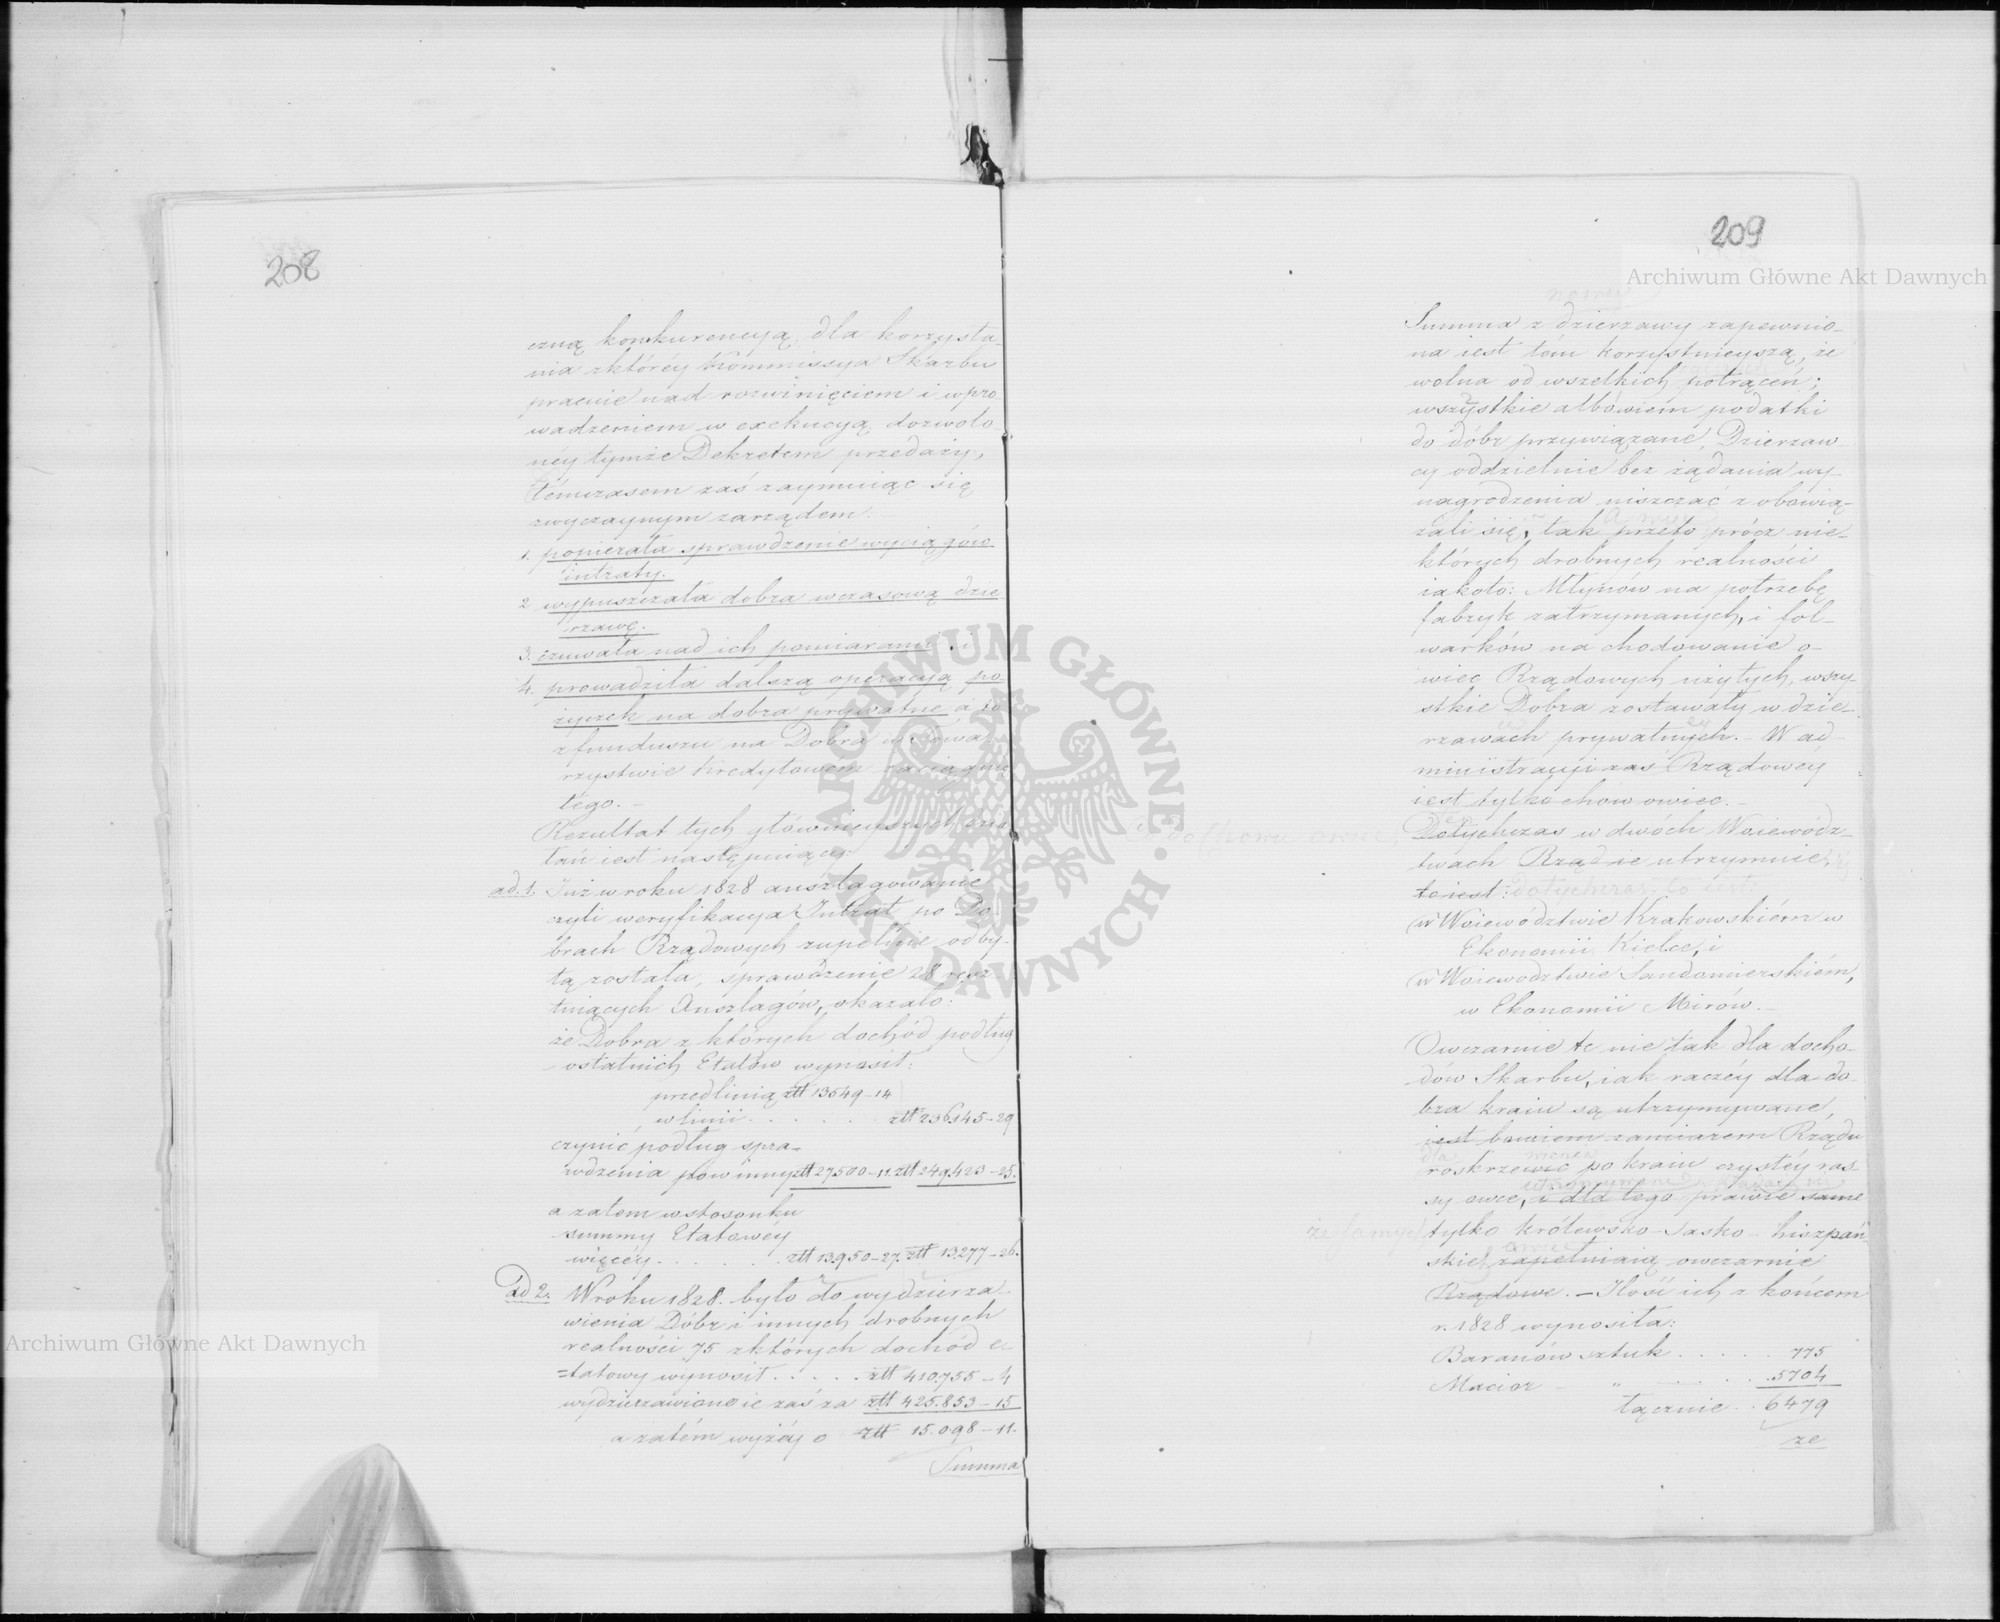 208
czną konkurencyą, dla korzysta-
nia z którey Kommissya Skarbu
pracuie nad rozwinięciem i wpro-
wadzeniem w exekucyą, dozwolo-
ney tymże Dekretem przedaży,
témczasem zaś zaymuiąc się
zwyczaynym zarządem:
1. popierała sprawdzenie wyciągów
intraty.
2 wypuszczała dobra wczasową dzie
rzawę.
3. czuwała nad ich pomiarami, i
4. prowadziła dalszą operacyą po
życzek na dobra prywatne a to
z funduszu na Dobra w Towa-
rzystwie Kredytowém zaciągnię
tego. –
Rezultat tych główniejszych dzia
łań iest następuiący:
ad. 1. Już w roku 1828 anszlagowanie
czyli weryfikacya Intrat po Do
brach Rządowych zupełnie odby-
tą została, sprawdzenie 28 resz
tuiących Anszlagów, okazało:
że Dobra z których dochód podług
ostatnich Etatów wynosił:
przedlinią złł 13549–14
w linii . . . . . . złł 236145–29
czynić podług spra-
wdzenia powinny złł 27500–11. złł 249.423–25.
a zatem w stosunku
summy Etatowéy
więcéy . . . . . złł 13.950–27. złł 13.277–26.
ad 2. W roku 1828. było do wydzierza-
wienia Dóbr i innych drobnych
realności 75 z których dochód e-
=tatowy wynosił . . . . . złł 410.755–4
wydzierzawiono ie zaś za złł 425.853–15
a zatém wyżéy o złł 15.098–11.
Summa
209
Summa z dzierzawy zapewnio-
na iest tém korzystnieyszą, że
wolna od wszelkich potrąceń;
wszystkie albowiem podatki
do dóbr przywiązane, Dzierzaw-
cy oddzielnie bez żądania wy-
nagrodzenia uiszczać z obowią-
zali się, tak przeto prócz nie-
których drobnych realności
iakoto: Młynów na potrzebę
fabryk zatrzymanych, i fol-
warków na chodowanie o-
wiec Rządowych użytych, wszy-
stkie Dobra zostawały w dzie-
rzawach prywatnych. – W ad-
ministracyi zas Rządowey
iest tylko chow owiec. –
Dotychczas w dwóch Woiewódz-
twach Rząd ie utrzymuie,
to iest: dotychczas, to iest:
w Woiewództwie Krakowskiém w
Ekonomii Kielce, i
w Woiewodztwie Sandomierskiém,
w Ekonomii Mirów. –
Owczarnie te nie tak dla docho-
dów Skarbu, iak raczéy dla do-
bra kraiu są utrzymywane,
iest bowiem zamiarem Rządu
dla
roskrzewić po kraiu czystéy ras-
utrzymywane
sy owce, i dla tego prawie same
że samych tylko królewsko-Sasko-hiszpań-
skie zapełniaią owczarnie
Rządowe. – Ilość ich z końcem
r. 1828 wynosiła:
Baranów sztuk . . . . . 775
Macior – „ – . . . . 5704
łącznie . . 6479
ze
Archiwum Główne Akt Dawnych
Archiwum Główne Akt Dawnych
ARCHIWUM GŁÓWNE AKT DAWNYCH